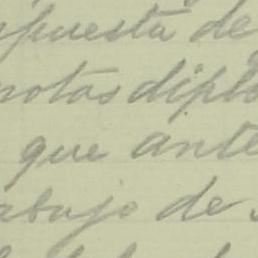 puesta de
notas diplo
que ante
abajo de